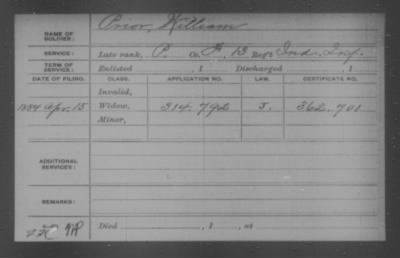 NAME OF SOLDIER: Prior, William
SERVICE: Late rank, P. Co. F, 13 Reg't Ind. Inf.
TERM OF SERVICE: Enlisted , 1 Discharged , 1
DATE OF FILING. CLASS. APPLICATION NO. LAW. CERTIFICATE NO.
Invalid,
1884 Apr. 15 Widow, 314.792 J. 362.701
Minor,
ADDITIONAL SERVICES:
REMARKS:
Died , 1 , at